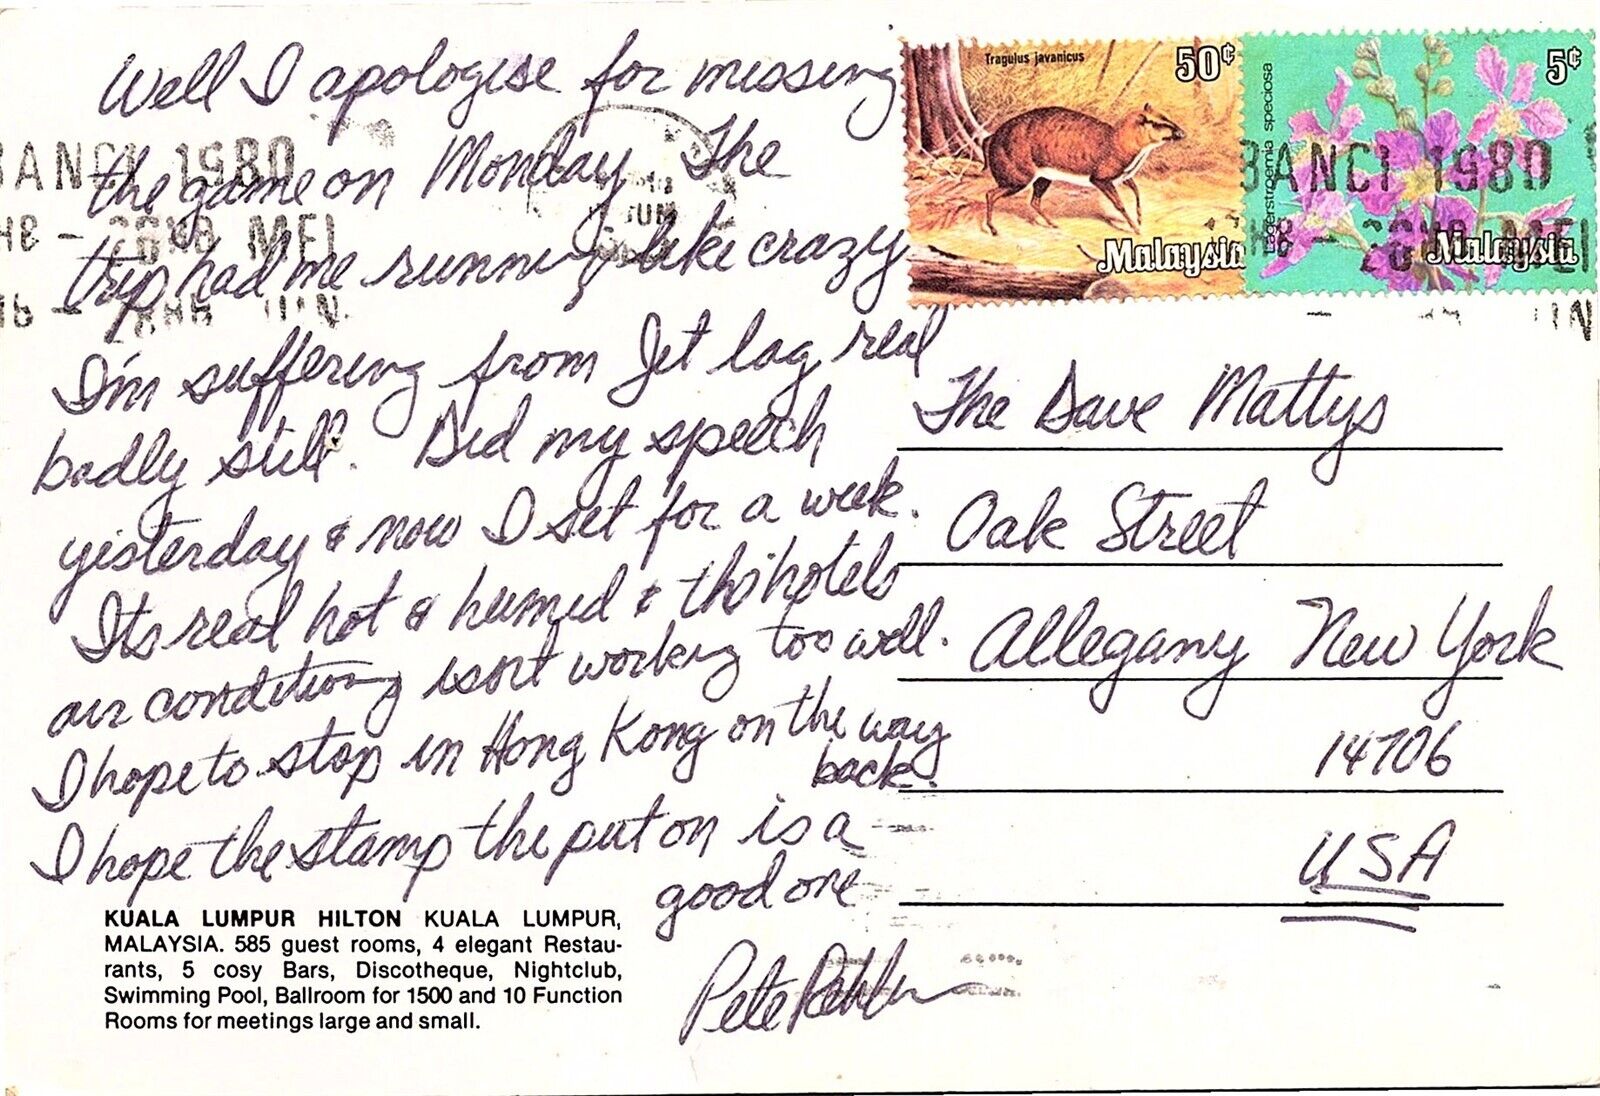 Well I apologise for missing
the game on Monday The
trip had me running like crazy
I'm suffering from Jet lag real
badly still. Did my speech
yesterday & now I set for a week.
Its real hot & humid & this hotels
air conditioning isnt working too well.
I hope to stop in Hong Kong on the way
back.
I hope the stamp the put on is a
good one
Pete
KUALA LUMPUR HILTON KUALA LUMPUR,
MALAYSIA. 585 guest rooms, 4 elegant Restau-
rants, 5 cosy Bars, Discotheque, Nightclub,
Swimming Pool, Ballroom for 1500 and 10 Function
Rooms for meetings large and small.
Tragulus javanicus
50¢
Malaysia
Lagerstroemia speciosa
5¢
Malaysia
BANCI 1980
MEI
JUN
BANCI 1980
MEI
The Dave Mattys
Oak Street
Allegany New York
14706
USA